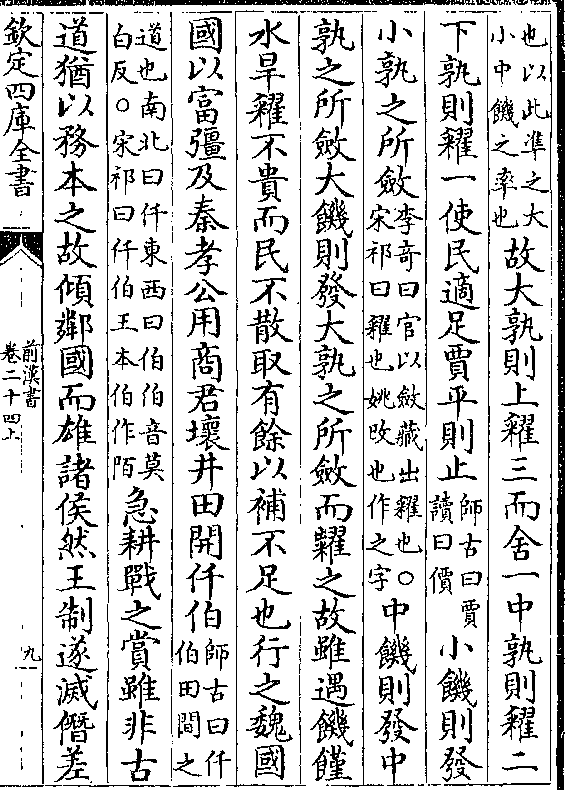 也以此準之大
小中饑之率也
故大孰則上糴三而舍一中孰則糴二
下孰則糴一使民適足賈平則止
師古曰賈
讀曰價
小饑則發
小孰之所斂
李奇曰官以斂藏出糴也○
宋祁曰糴也姚改也作之字
中饑則發中
孰之所斂大饑則發大孰之所斂而糶之故雖遇饑饉
水旱糴不貴而民不散取有餘以補不足也行之魏國
國以富彊及秦孝公用商君壞井田開仟伯
師古曰仟
伯田間之
道也南北曰仟東西曰伯伯音莫
白反○宋祁曰仟伯王本伯作陌
急耕戰之賞雖非古
道猶以務本之故傾鄰國而雄諸侯然王制遂滅僭差
欽定四庫全書
前漢書
卷二十四上
九